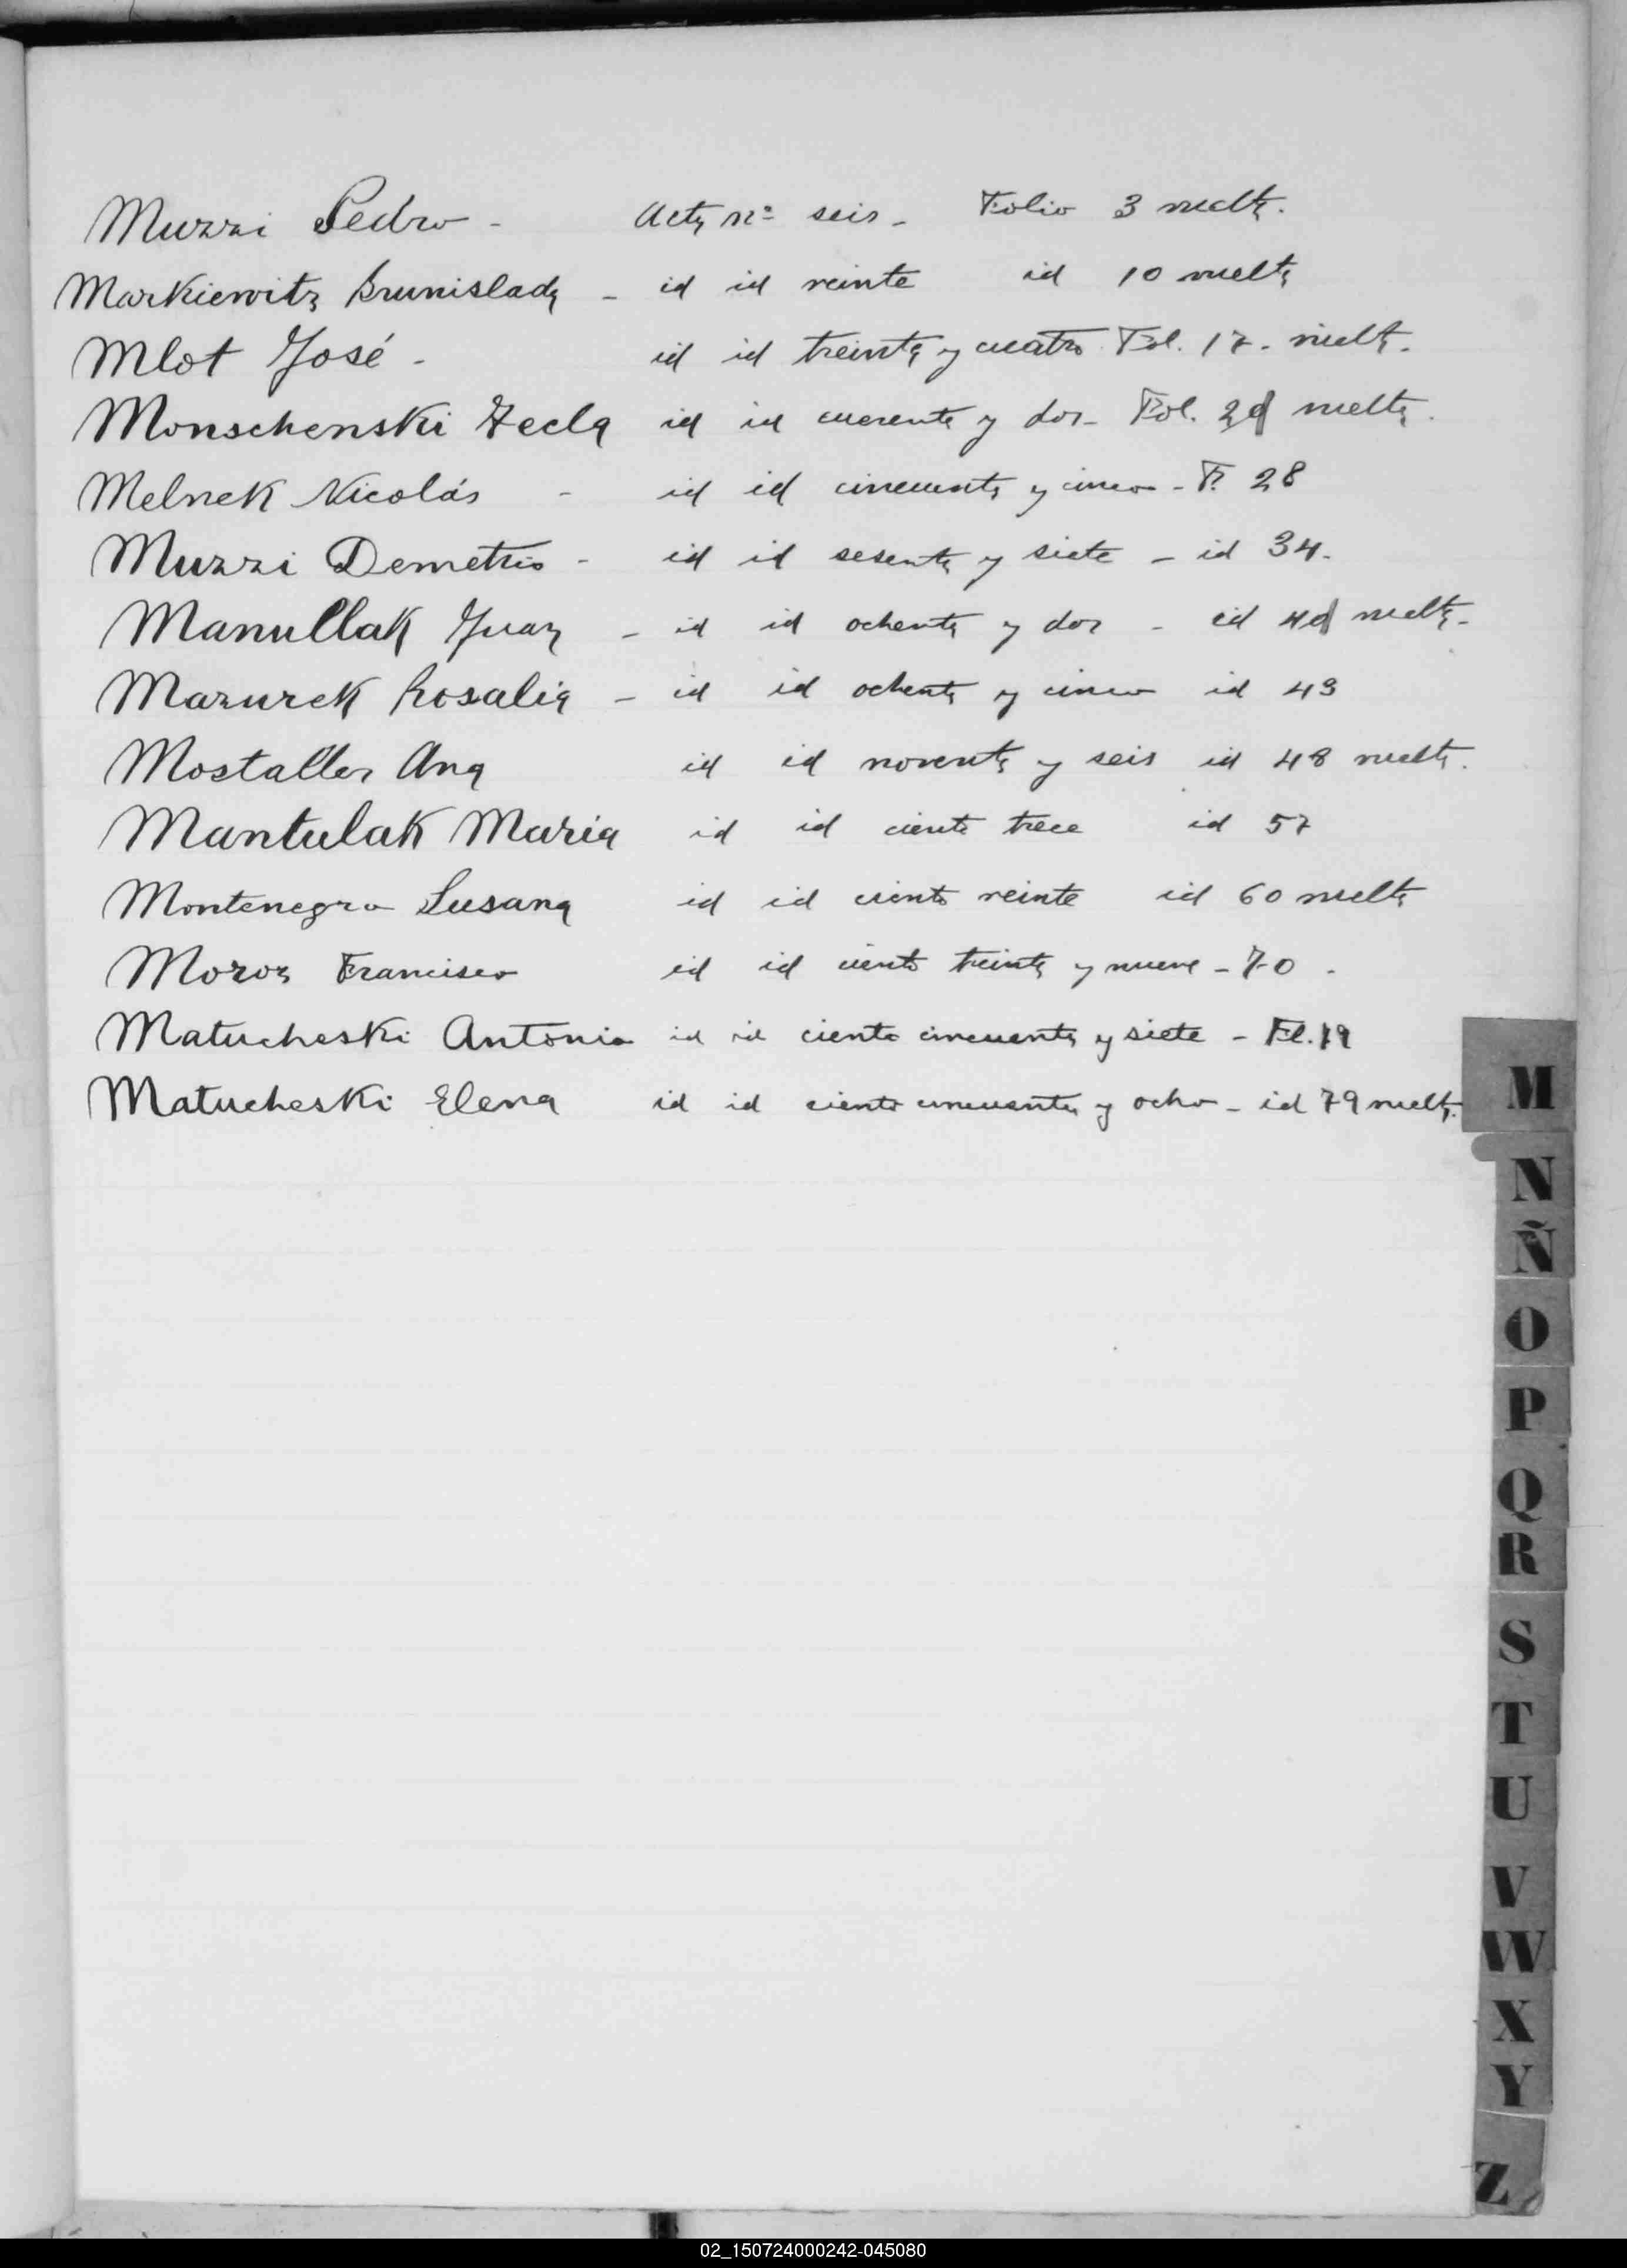 Muzzi Pedro - Acta nº seis - Folio 3 vuelta.
Markiewitz Brunislada - id id veinte id 10 vuelta
Mlot José - id id treinta y cuatro Fol. 17 - vuelta.
Monschenski Tecla id id cuarenta y dos - Fol. 21 vuelta.
Melnek Nicolás - id id cincuenta y cinco - F. 28
Muzzi Demetrio - id id sesenta y siete - id 34.
Manullak Juan - id id ochenta y dos - id 41 vuelta -
Mazurek Rosalia - id id ochenta y cinco id 43
Mostaller Ana id id noventa y seis id 48 vuelta.
Mantulak Maria id id ciento trece id 57
Montenegro Susana id id ciento veinte id 60 vuelta
Moroz Francisco id id ciento treinta y nueve - 70 -
Matucheski Antonio id id ciento cincuenta y siete - Fl. 79
Matucheski Elena id id ciento cincuenta y ocho - id 79 vuelta.
M
N
Ñ
O
P
Q
R
S
T
U
V
W
X
Y
Z
02_150724000242-045080